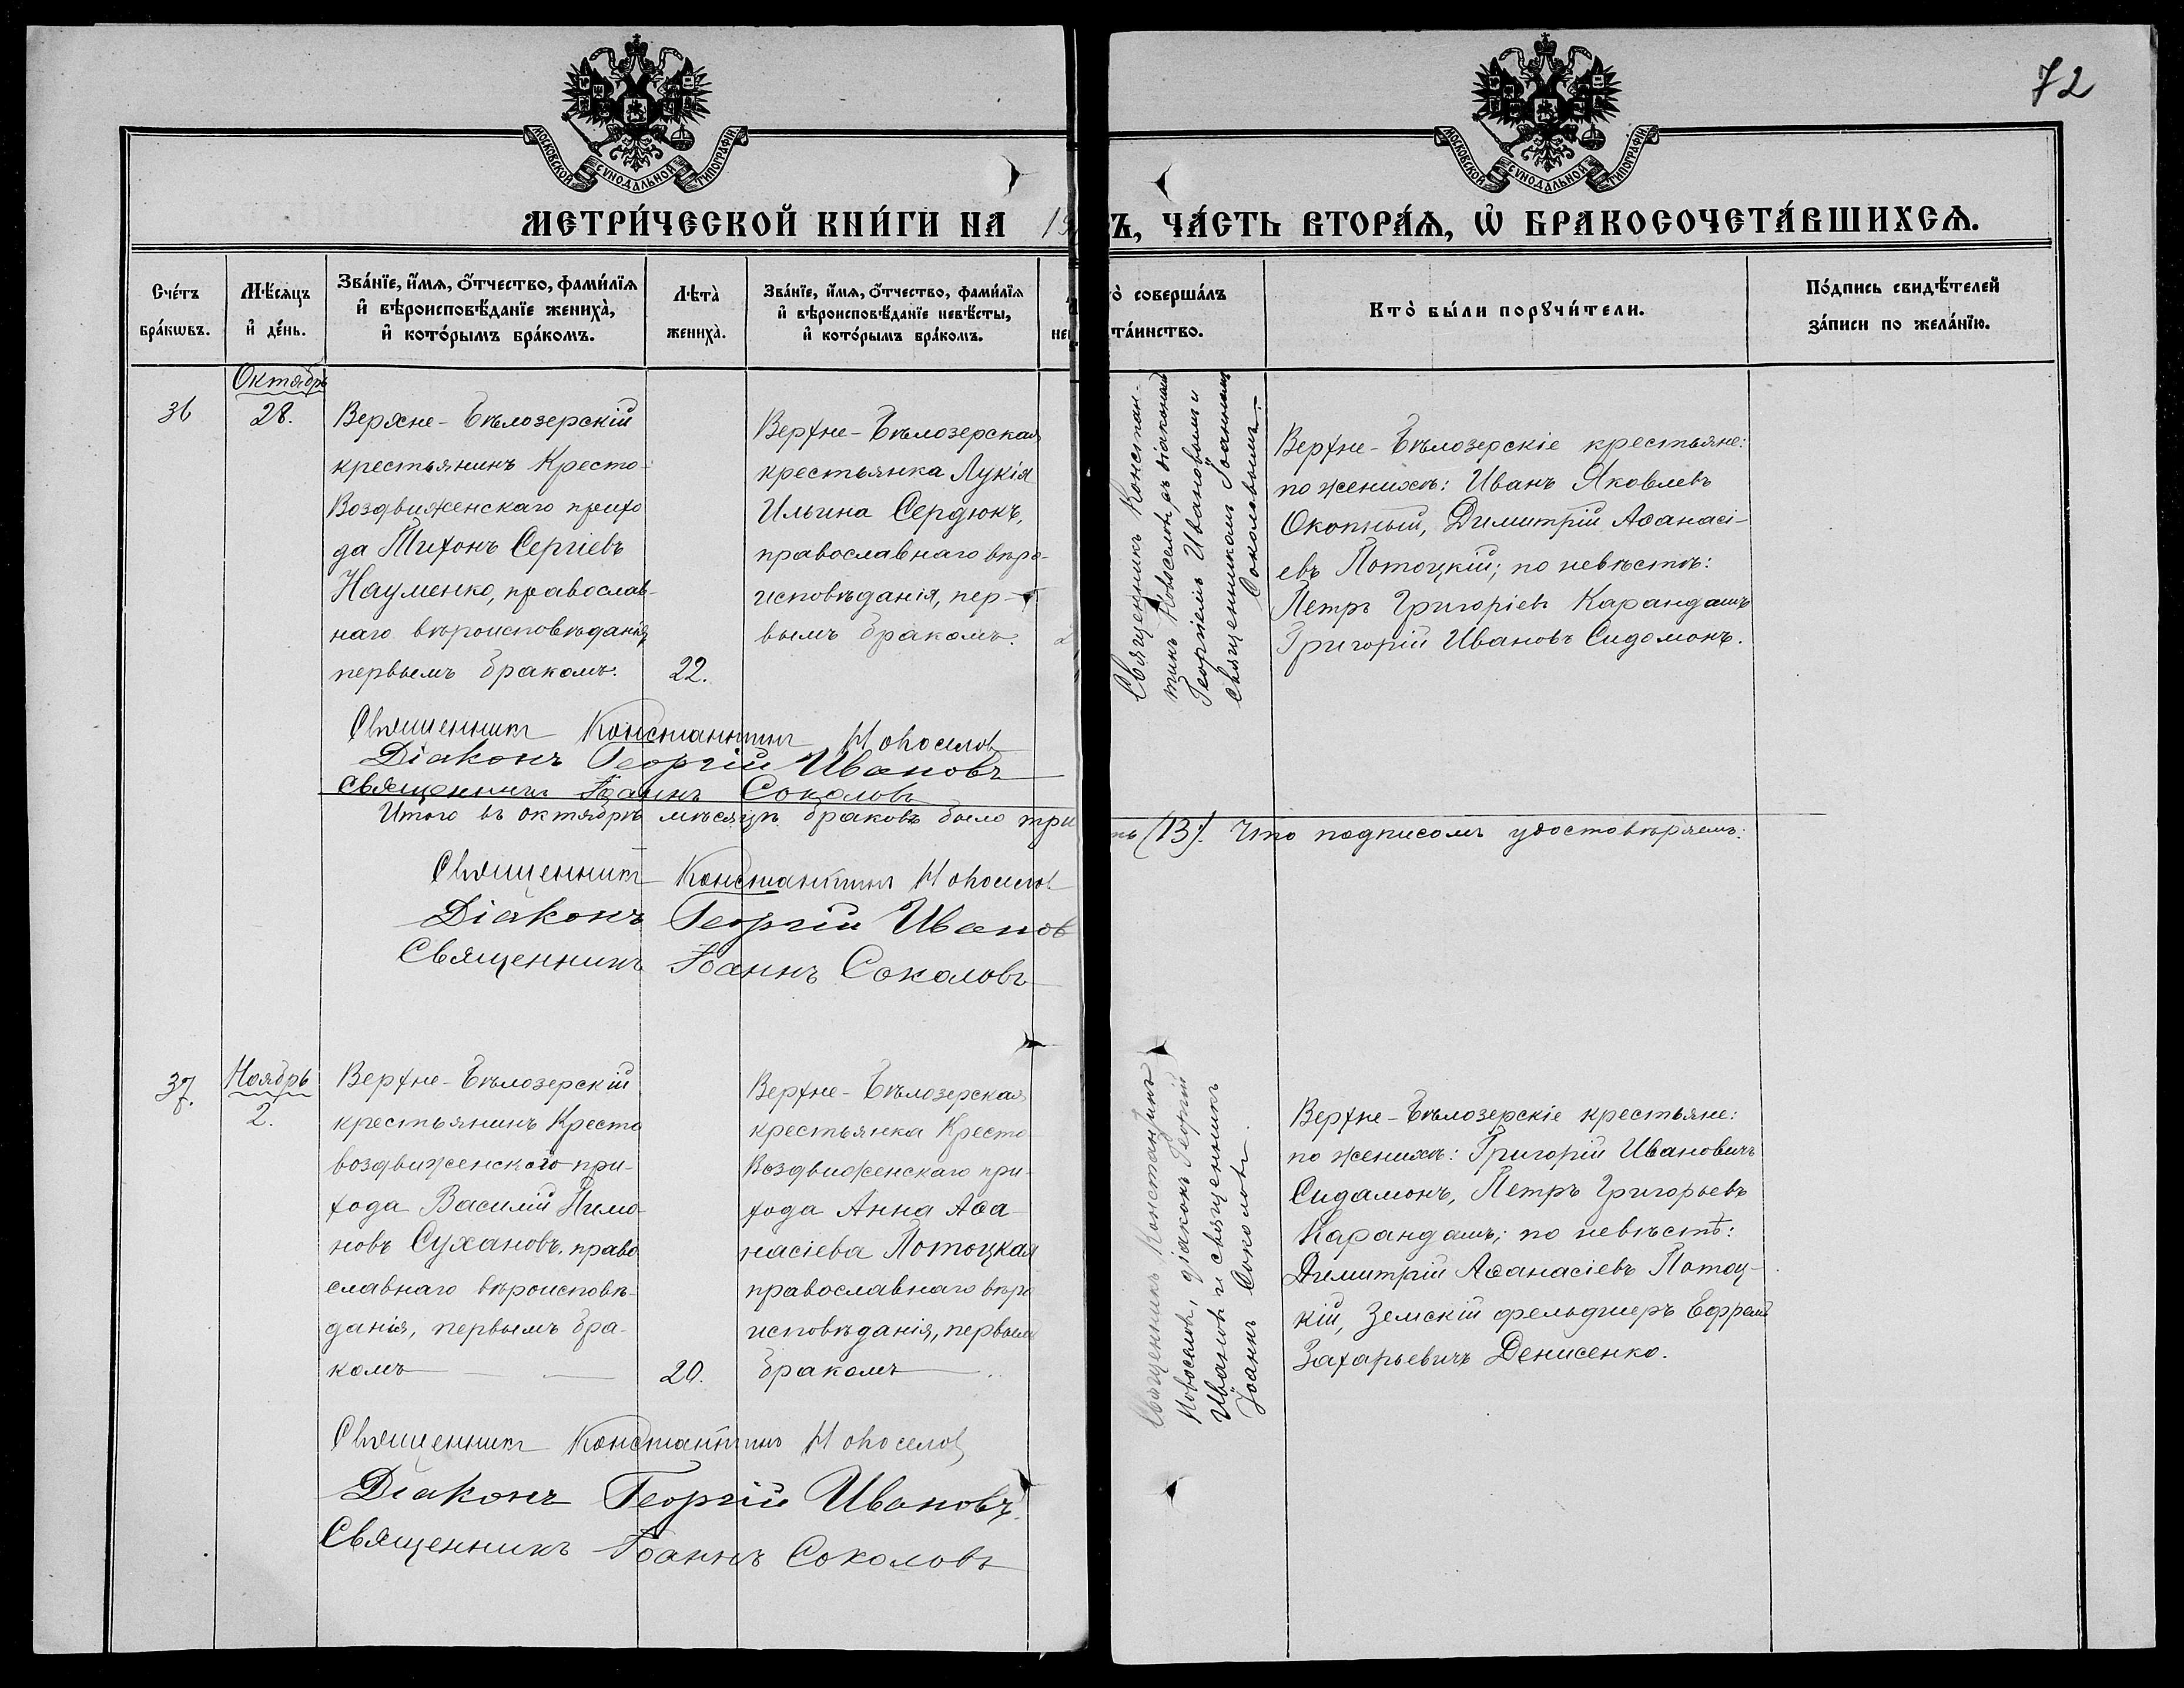 72
МОСКОВСКОЙ СѴНОДАЛЬНОЙ ТИПОГРАФІИ
МОСКОВСКОЙ СѴНОДАЛЬНОЙ ТИПОГРАФІИ
МЕТРИ́ЧЕСКОЙ КНИ́ГИ НА 19
Ъ, ЧА́СТЬ ВТОРА́Ѧ, Ѡ҆ БРАКОСОЧЕТА́ВШИХСѦ.
Сче́тъ
бра́кѡвъ.
Мѣ́сяцъ
и҆ де́нь.
Зва́нїе, и҆́мѧ, ѻ҆́тчество, фами́лїѧ
и҆ вѣроисповѣ́данїе жениха̀,
и҆ кото́рымъ бра́комъ.
Лѣта̀
жениха̀.
Зва́нїе, и҆́мѧ, ѻ҆́тчество, фами́лїѧ
и҆ вѣроисповѣ́данїе невѣ́сты,
и҆ кото́рымъ бра́комъ.
не
то̀ соверша́лъ
та́инство.
Кто̀ бы́ли порꙋчи́тели.
По́дпись свидѣ́телей
за́писи по жела́нїю.
36
Октябрь
28.
Верхне-Бѣлозерскій
крестьянинъ Кресто-
Воздвиженскаго прихо
да Тихонъ Сергіевъ
Науменко, православ-
наго вѣроисповѣданія,
первымъ бракомъ.
22.
Верхне-Бѣлозерская
крестьянка Лукія
Ильина Сердюкъ,
православнаго вѣро-
исповѣданія, пер-
вымъ бракомъ.
2
Священникъ Констан-
тинъ Новоселовъ съ діакономъ
Георгіемъ Ивановымъ и
священникомъ Іоанномъ
Соколовымъ.
Верхне-Бѣлозерскіе крестьяне:
по женихѣ: Иванъ Яковлевъ
Окопный, Димитрій Аѳанасі-
евъ Потоцкій; по невѣстѣ:
Петръ Григоріевъ Карандашъ
Григорій Ивановъ Сидомонъ.
Священникъ Константинъ Новоселов
Діаконъ Георгій Ивановъ
Священникъ Іоаннъ Соколовъ
Итого въ октябрѣ мѣсяцѣ браковъ было три
ть (13). Что подписомъ удостовѣряемъ:
Священникъ Константинъ Новоселов
Діаконъ Георгій Иванов
Священникъ Іоаннъ Соколовъ
37.
Ноябрь
2.
Верхне-Бѣлозерскій
крестьянинъ Кресто
воздвиженскаго при-
хода Василій
новъ Сухановъ, право
славнаго вѣроисповѣ-
данія, первымъ бра-
комъ
20.
Верхне-Бѣлозерская
крестьянка Кресто
Воздвиженскаго при-
хода Анна Аѳа-
насіева Потоцкая
православнаго вѣро
исповѣданія, первымъ
бракомъ
Священникъ Константинъ
Новоселовъ, діаконъ Георгій
Ивановъ и священникъ
Іоаннъ Соколовъ.
Верхне-Бѣлозерскіе крестьяне:
по женихѣ: Григорій Ивановичъ
Сидамонъ, Петръ Григорьевъ
Карандашъ; по невѣстѣ:
Димитрій Аѳанасіевъ Потоц-
кій, Земскій фельдшеръ Ефремъ
Захарьевичъ Денисенко.
Священникъ Константинъ Новоселов
Діаконъ Георгій Ивановъ
Священникъ Іоаннъ Соколовъ